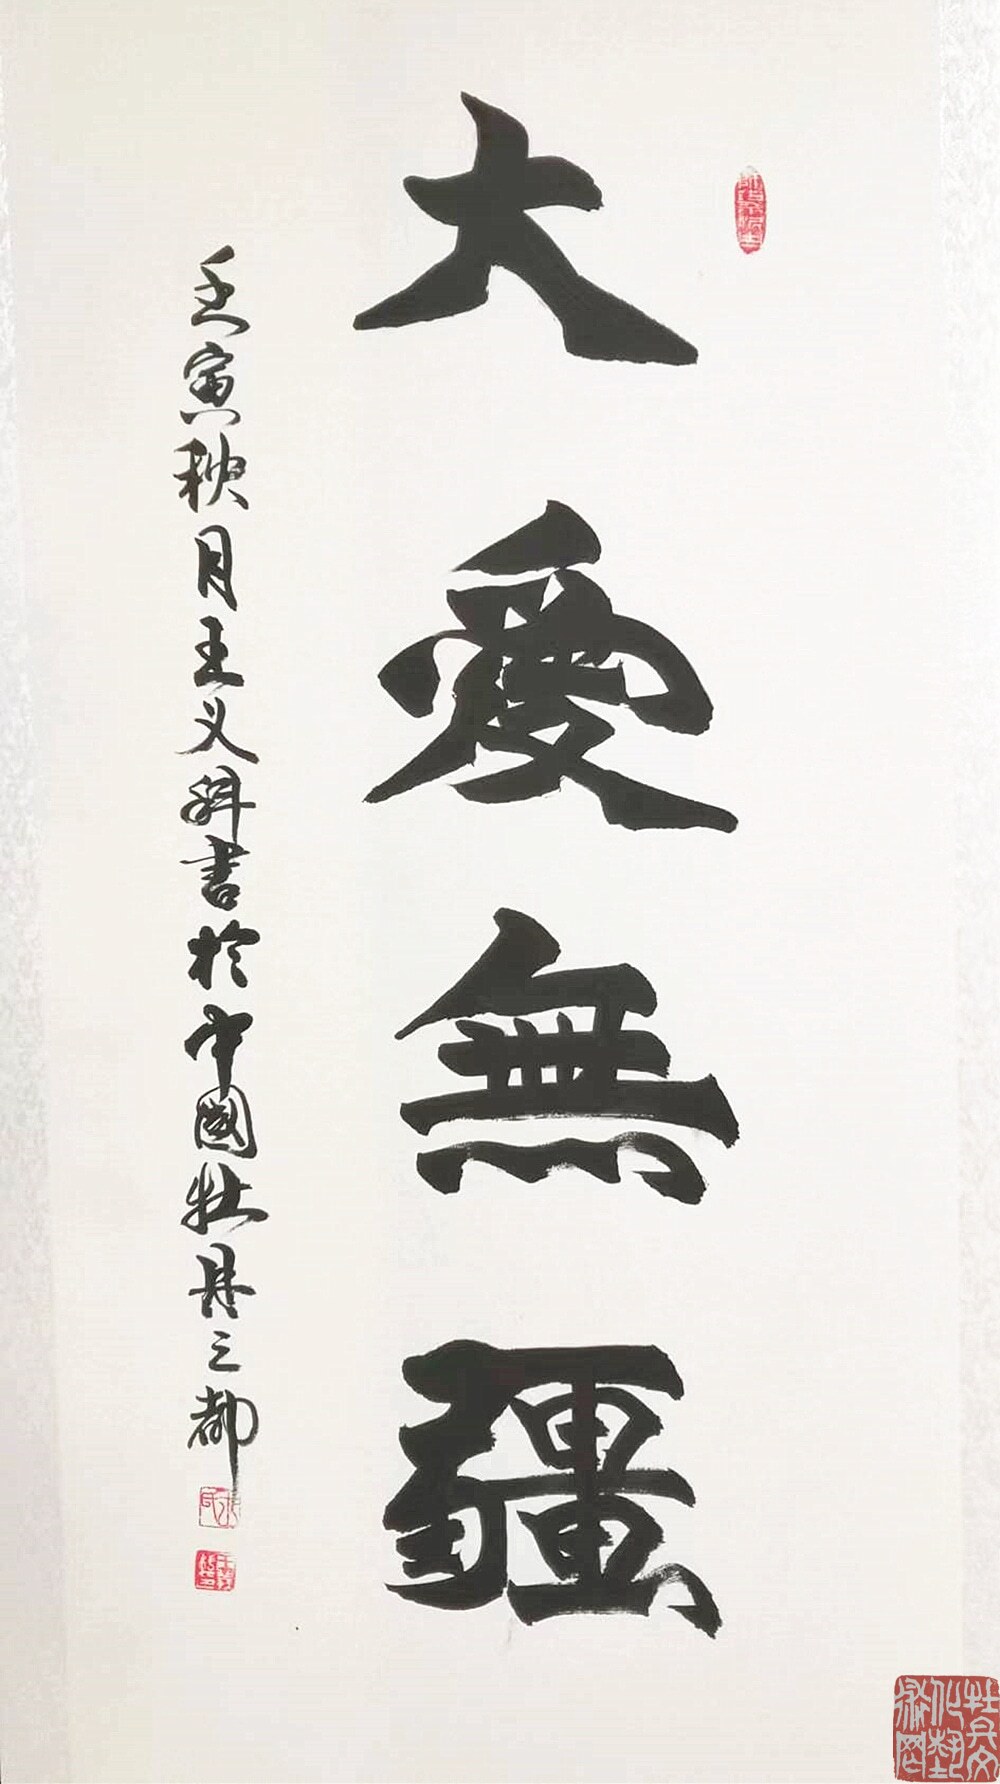 大愛無疆
壬寅秋月王义科書於中國牡丹之都